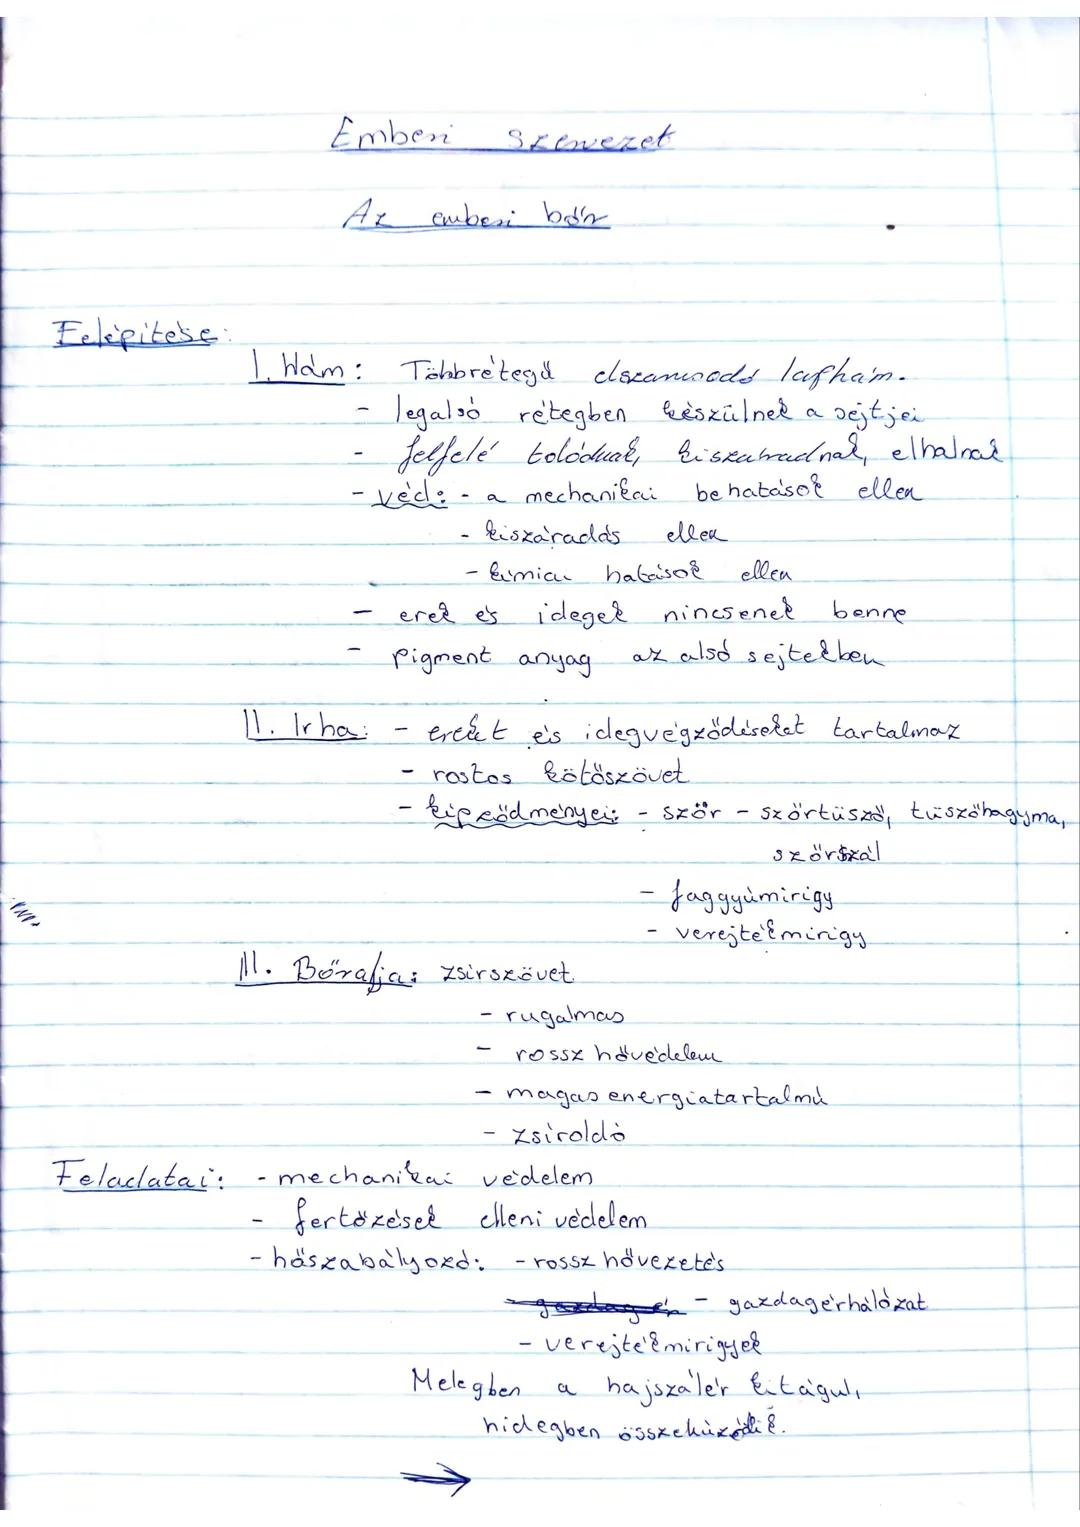 Emberi szervezet
Az emberi bőr
Felépítése:
I. Hám: Többrétegű elszarusodó laphám.
- legalsó rétegben készülnek a sejtjei
- felfelé tolódnak, kiszáradnak, elhalnak
- véd: - a mechanikai behatások ellen
- kiszáradás ellen
- kémiai hatások ellen
- erek és idegek nincsenek benne
- pigment anyag az alsó sejtekben
II. Irha: - ereket és idegvégződéseket tartalmaz
- rostos kötőszövet
- képződményei: - szőr - szőrtüsző, tüszőhagyma,
szőrszál
- faggyúmirigy
- verejtékmirigy
III. Bőralja: zsírszövet
- rugalmas
- rossz hővédelem
- magas energiatartalmú
- zsíroldó
Feladatai: - mechanikai védelem
- fertőzések elleni védelem
- hőszabályozó: - rossz hővezetés
- gazdagérhálózat
- verejtékmirigyek
Melegben a hajszálér kitágul,
hidegben összehúzódik.